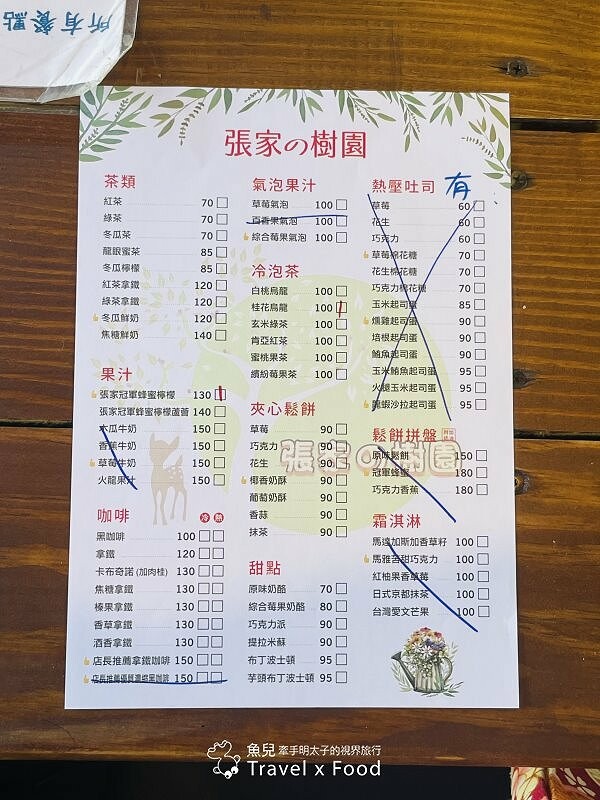 所有餐點
張家の樹園
茶類
紅茶 70
綠茶 70
冬瓜茶 70
龍眼蜜茶 85
冬瓜檸檬 85
紅茶拿鐵 120
綠茶拿鐵 120
冬瓜鮮奶 120
焦糖鮮奶 140
果汁
張家冠軍蜂蜜檸檬 130
張家冠軍蜂蜜檸檬蘆薈 140
木瓜牛奶 150
香蕉牛奶 150
草莓牛奶 150
火龍果汁 150
咖啡 冷 熱
黑咖啡 100
拿鐵 120
卡布奇諾 (加肉桂) 130
焦糖拿鐵 130
榛果拿鐵 130
香草拿鐵 130
酒香拿鐵 130
店長推薦拿鐵咖啡 150
店長推薦優質濃縮黑咖啡 150
氣泡果汁
草莓氣泡 100
百香果氣泡 100
綜合莓果氣泡 100
冷泡茶
白桃烏龍 100
桂花烏龍 100
玄米綠茶 100
肯亞紅茶 100
蜜桃果茶 100
繽紛莓果茶 100
夾心鬆餅
草莓 90
巧克力 90
花生 90
椰香奶酥 90
葡萄奶酥 90
香蒜 90
抹茶 90
甜點
原味奶酪 70
綜合莓果奶酪 80
巧克力派 90
提拉米蘇 90
布丁波士頓 95
芋頭布丁波士頓 95
熱壓吐司 有
草莓 60
花生 60
巧克力 60
草莓棉花糖 70
花生棉花糖 70
巧克力棉花糖 70
玉米起司蛋 85
燻雞起司蛋 90
培根起司蛋 90
鮪魚起司蛋 90
玉米鮪魚起司蛋 95
火腿玉米起司蛋 95
龍蝦沙拉起司蛋 95
鬆餅拼盤
原味鬆餅 150
冠軍蜂蜜 180
巧克力香蕉 180
張家の樹園
霜淇淋
馬達加斯加香草籽 100
馬雅古甜巧克力 100
紅柚果香草莓 100
日式京都抹茶 100
台灣愛文芒果 100
魚兒 牽手明太子的視界旅行
Travel x Food